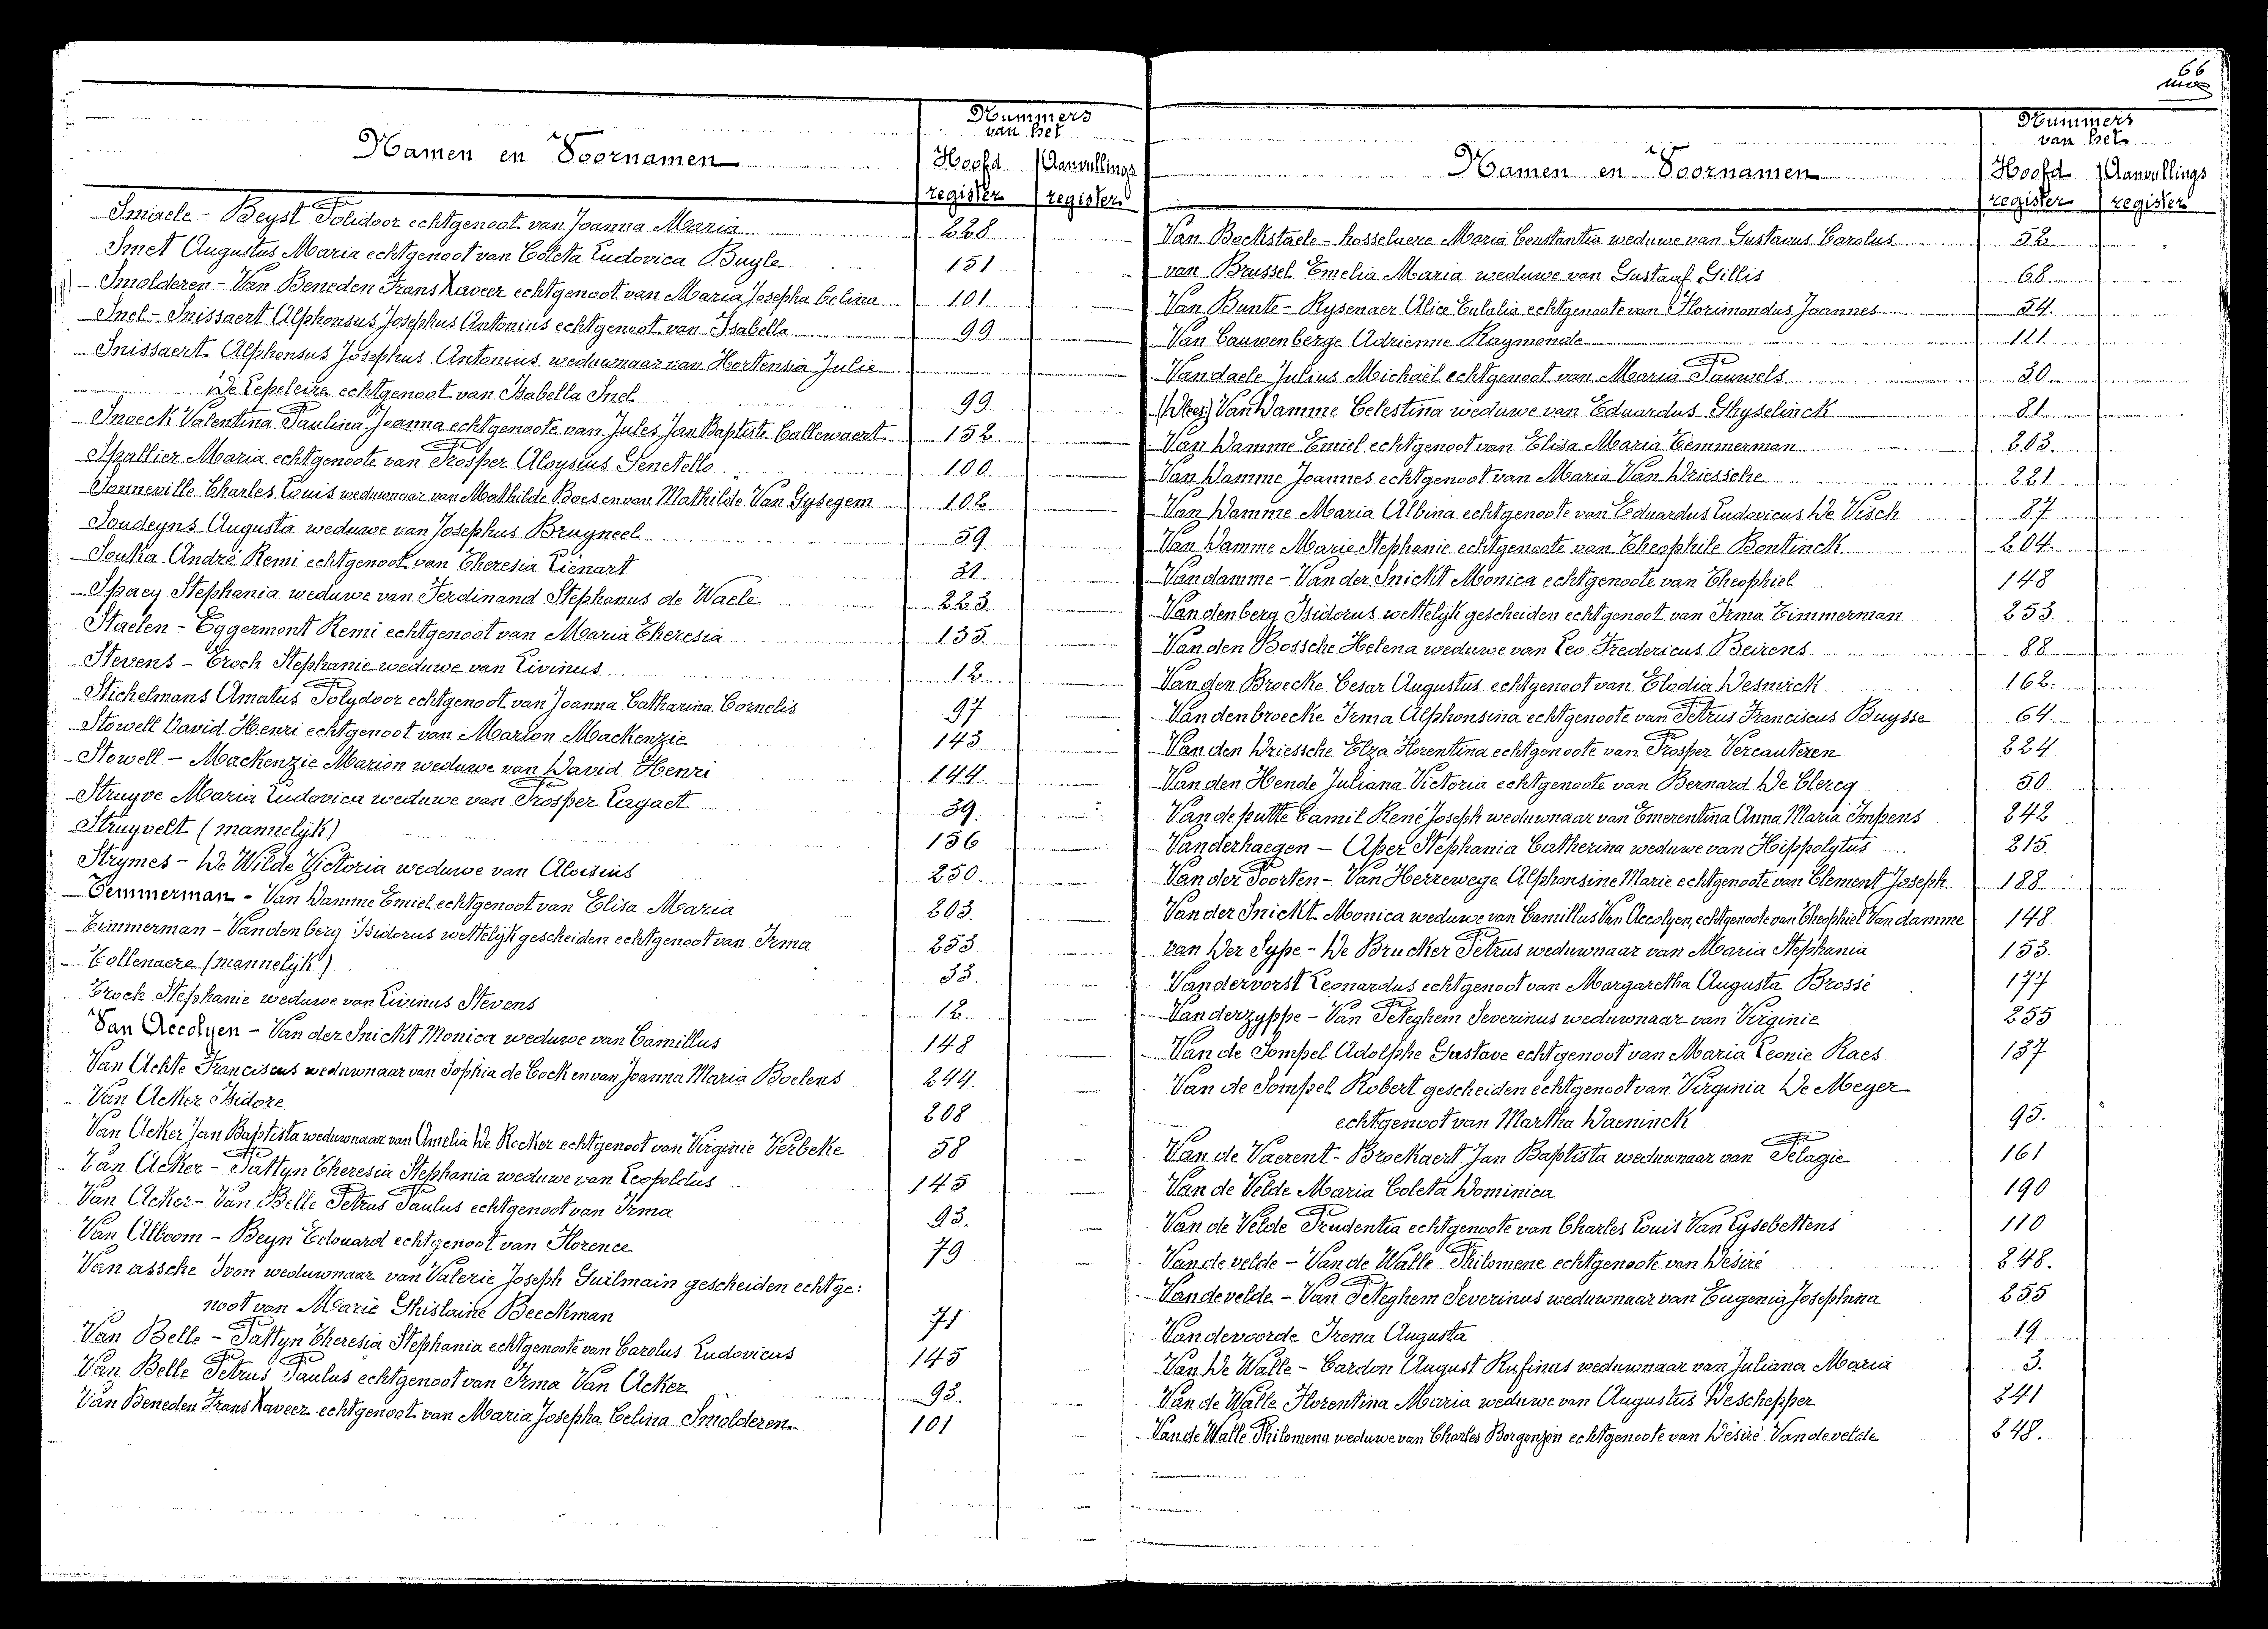 66
Nummers
van het
Namen en Voornamen
Hoofd Aanvullings
register register
Smaele - Beyst Polidoor echtgenoot van Joanna Maria 228
Smet Augustus Maria echtgenoot van Coleta Ludovica Buyle 151
Smolderen - Van Beneden Frans Xaveer echtgenoot van Maria Josepha Celina 101
Snel - Snissaert Alphonsus Josephus Antonius echtgenoot van Isabella 99
Snissaert Alphonsus Josephus Antonius weduwnaar van Hortensia Julie
De Lepeleire echtgenoot van Isabella Snel 99
Snoeck Valentina Paulina Joanna echtgenoote van Jules Jan Baptiste Callewaert 152
Spallier Maria echtgenoote van Prosper Aloysius Genetello 100
Sonneville Charles Louis weduwnaar van Mathilde Boes en van Mathilde Van Gysegem 102
Soudeyns Augusta weduwe van Josephus Bruyneel 59
Souka André Remi echtgenoot van Theresia Lienart 31
Spaey Stephania weduwe van Ferdinand Stephanus de Waele 223
Staelen - Eggermont Remi echtgenoot van Maria Theresia 135
Stevens - Troch Stephanie weduwe van Livinus 12
Stichelmans Amatus Polydoor echtgenoot van Joanna Catharina Cornelis 97
Stowell David Henri echtgenoot van Marion Mackenzie 143
Stowell - Mackenzie Marion weduwe van David Henri 144
Struyve Maria Ludovica weduwe van Prosper Lagaet 39
Struyvelt (mannelijk) 156
Strymes - De Wilde Victoria weduwe van Aloisius 250
Temmerman - Van Damme Emiel echtgenoot van Elisa Maria 203
Timmerman - Vandenberg Isidorus wettelijk gescheiden echtgenoot van Irma 253
Tollenaere (mannelijk) 33
Troch Stephanie weduwe van Livinus Stevens 12
Van Accolyen - Van der Snickt Monica weduwe van Camillus 148
Van Achte Franciscus weduwnaar van Sophia de Cock en van Joanna Maria Boelens 244
Van Acker Isidore 208
Van Acker Jan Baptista weduwnaar van Amelia De Rocker echtgenoot van Virginie Verbeke 58
Van Acker - Pattyn Theresia Stephania weduwe van Leopoldus 145
Van Acker - Van Belle Petrus Paulus echtgenoot van Irma 93
Van Alboom - Beyn Edouard echtgenoot van Florence 79
Van assche Ivon weduwnaar van Valerie Joseph Guilmain gescheiden echtge:
noot van Marie Ghislaine Beeckman 71
Van Belle - Pattyn Theresia Stephania echtgenoote van Carolus Ludovicus 145
Van Belle Petrus Paulus echtgenoot van Irma Van Acker 93
Van Beneden Frans Xaveer echtgenoot van Maria Josepha Celina Smolderen 101
Nummers
van het
Namen en Voornamen
Hoofd Aanvullings
register register
Van Bockstaele - hosselaere Maria Constantia weduwe van Gustavus Carolus 52
van Brussel Emelia Maria weduwe van Gustaaf Gillis 68
Van Bunte - Rysenaer Alice Eulalia echtgenoote van Florimondus Joannes 54
Van Cauwenberge Adrienne Raymonde 111
Vandaele Julius Michaël echtgenoot van Maria Pauwels 30
(Wees) Van Damme Celestina weduwe van Eduardus Ghyselinck 81
Van Damme Emiel echtgenoot van Elisa Maria Temmerman 203
Van Damme Joannes echtgenoot van Maria Van Driessche 221
Van Damme Maria Albina echtgenoote van Eduardus Ludovicus De Visch 87
Van Damme Marie Stephanie echtgenoote van Theophile Bontinck 204
Vandamme - Van der Snickt Monica echtgenoote van Theophiel 148
Vandenberg Isidorus wettelijk gescheiden echtgenoot van Irma Timmerman 253
Van den Bossche Helena weduwe van Leo Fredericus Beirens 88
Van den Broecke Cesar Augustus echtgenoot van Elodia Desmick 162
Vandenbroecke Irma Alphonsina echtgenoote van Petrus Franciscus Buysse 64
Van den Driessche Elza Florentina echtgenoote van Prosper Vercauteren 224
Van den Hende Juliana Victoria echtgenoote van Bernard De Clercq 50
Vandeputte Camil René Joseph weduwnaar van Emerentina Anna Maria Impens 242
Vanderhaegen - Aper Stephania Catherina weduwe van Hippolytus 215
Van der Poorten - Van Herrewege Alphonsine Marie echtgenoote van Clement Joseph 188
Van der Snickt Monica weduwe van Camillus Van Accolyen, echtgenoote van Theophiel Van damme 148
van Der Sype - De Brucker Petrus weduwnaar van Maria Stephania 153
Vandervorst Leonardus echtgenoot van Margaretha Augusta Brossé 177
Vanderzyppe - Van Peteghem Severinus weduwnaar van Virginie 255
Van de Sompel Adolphe Gustave echtgenoot van Maria Leonie Raes 137
Van de Sompel Robert gescheiden echtgenoot van Virginia De Meyer
echtgenoot van Martha Waeninck 95
Van de Vaerent - Brockaert Jan Baptista weduwnaar van Pelagie 161
Van de Velde Maria Coleta Dominica 190
Van de Velde Prudentia echtgenoote van Charles Louis Van Lysebettens 110
Van de velde - Van de Walle Philomene echtgenoote van Désiré 248
Vandevelde - Van Peteghem Severinus weduwnaar van Eugenia Josephina 255
Vandevoorde Irena Augusta 19
Van De Walle - Cardon August Rufinus weduwnaar van Juliana Maria 3
Van de Walle Florentina Maria weduwe van Augustus Deschepper 241
Van de Walle Philomena weduwe van Charles Borgonjon echtgenoote van Désiré Vandevelde 248